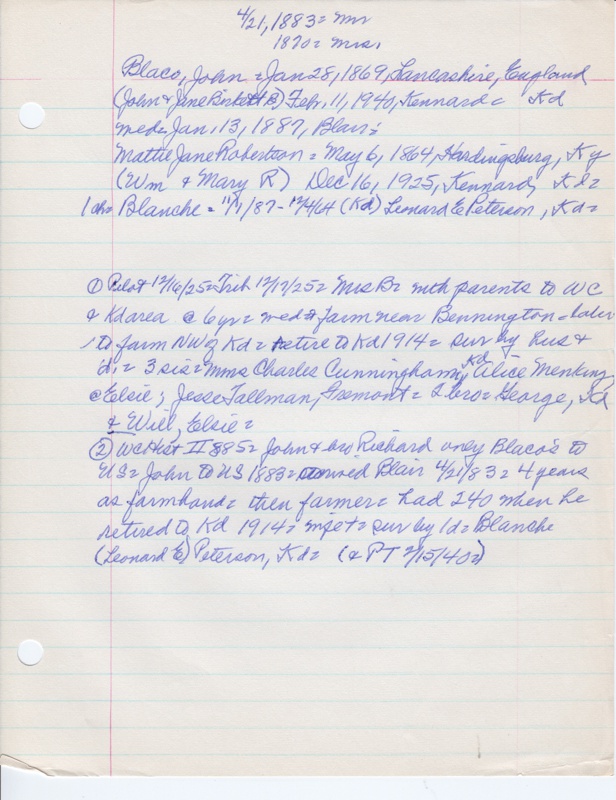 4/21, 1883 = Mr
1870 = Mrs.
Blaco, John = Jan 28, 1869, Lancashire, England
(John & Jane Birkett B) Feb. 11, 1940, Kennard = Kd
med = Jan. 13, 1887, Blair =
Mattie Jane Robertson = May 6, 1864, Hardingsburg, Ky
(Wm & Mary R) Dec 16, 1925, Kennard, Kd =
1 ch = Blanche = 11/1/87 - 12/4/64 (Kd) Leonard E Peterson, Kd =
① Pilot 12/16/25 = Trib 12/17/25 = Mrs B = with parents to WC
& Kd area @ 6 yr = med = farm near Bennington = later
to farm NW of Kd = retire to Kd 1914 = sur by hus &
d. = 3 sis = Mmes Charles Cunningham, Kd, Alice Menking
@ Elsie; Jesse Tallman, Fremont = 2 bro = George, Kd
& Will, Elsie =
② WC Hist II 885 = John & bro Richard only Blaco's to
US = John to US 1883 = arrived Blair 4/21/83 = 4 years
as farmhand = then farmer = had 240 when he
retired to Kd 1914 = = sur by 1 d = Blanche
(Leonard E) Peterson, Kd = (& PT 2/15/40 =)